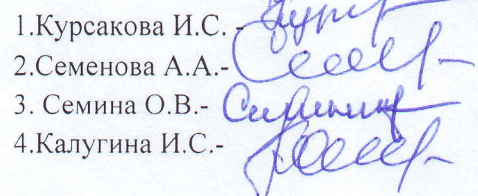 1.Курсакова И.С. -
2.Семенова А.А.-
3. Семина О.В.-
4.Калугина И.С.-